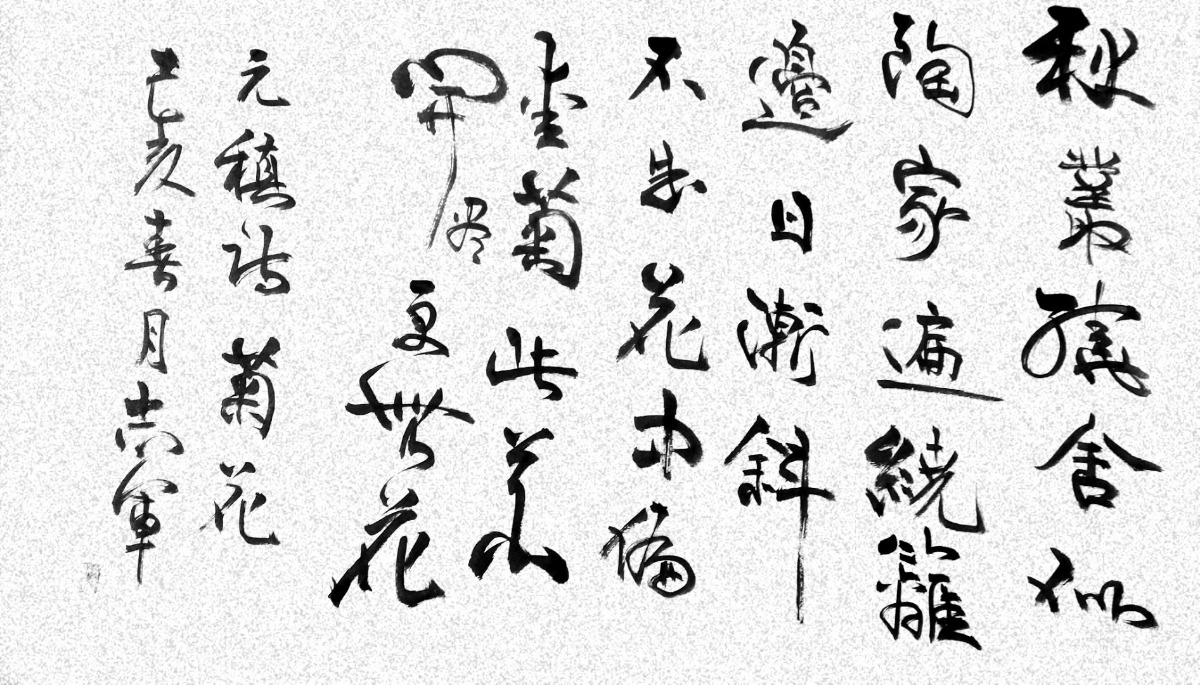 秋叢繞舍似
陶家遍繞籬
邊日漸斜
不是花中偏
愛菊此花
開尽更無花
元稹詩菊花
己亥春月志軍